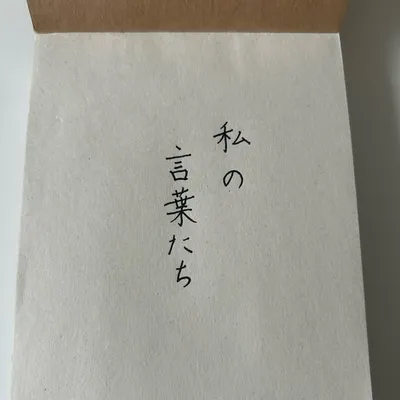 私の
言葉たち